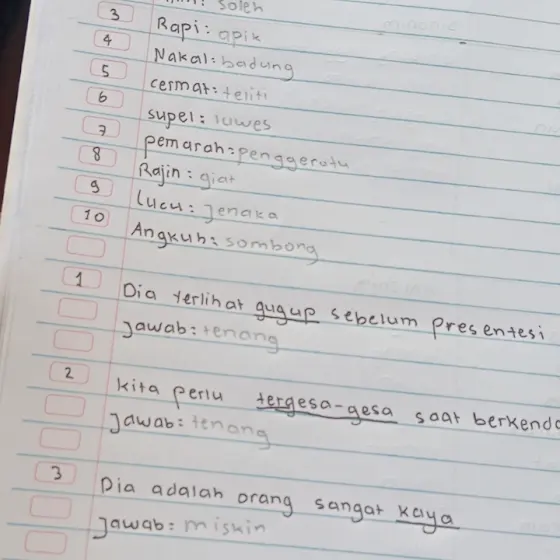 : soleh
3 Rapi: apik
4 Nakal: badung
5 cermat: teliti
6 supel: luwes
7 pemarah: penggerutu
8 Rajin: giat
9 Lucu: Jenaka
10 Angkuh: sombong
1 Dia terlihat gugup sebelum presentesi
Jawab: tenang
2 kita perlu tergesa-gesa saat berkenda
Jawab: tenang
3 Dia adalah orang sangat kaya
Jawab: miskin